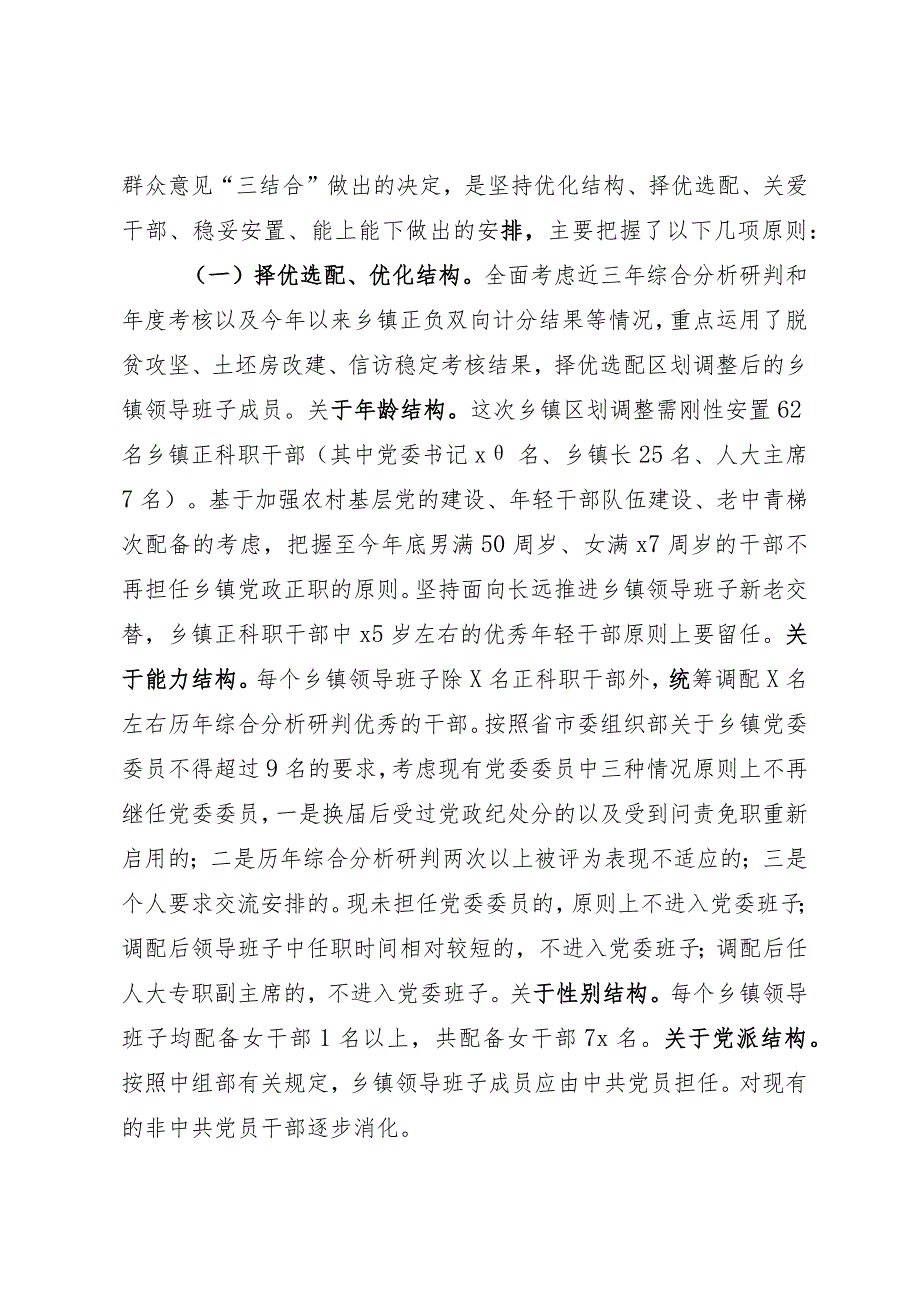 群众意见“三结合”做出的决定，是坚持优化结构、择优选配、关爱
干部、稳妥安置、能上能下做出的安排，主要把握了以下几项原则：
（一）择优选配、优化结构。全面考虑近三年综合分析研判和
年度考核以及今年以来乡镇正负双向计分结果等情况，重点运用了脱
贫攻坚、土坯房改建、信访稳定考核结果，择优选配区划调整后的乡
镇领导班子成员。关于年龄结构。这次乡镇区划调整需刚性安置 62
名乡镇正科职干部（其中党委书记 xθ 名、乡镇长 25 名、人大主席
7 名）。基于加强农村基层党的建设、年轻干部队伍建设、老中青梯
次配备的考虑，把握至今年底男满 50 周岁、女满 x7 周岁的干部不
再担任乡镇党政正职的原则。坚持面向长远推进乡镇领导班子新老交
替，乡镇正科职干部中 x5 岁左右的优秀年轻干部原则上要留任。关
于能力结构。每个乡镇领导班子除 X 名正科职干部外，统筹调配 X 名
左右历年综合分析研判优秀的干部。按照省市委组织部关于乡镇党委
委员不得超过 9 名的要求，考虑现有党委委员中三种情况原则上不再
继任党委委员，一是换届后受过党政纪处分的以及受到问责免职重新
启用的；二是历年综合分析研判两次以上被评为表现不适应的；三是
个人要求交流安排的。现未担任党委委员的，原则上不进入党委班子；
调配后领导班子中任职时间相对较短的，不进入党委班子；调配后任
人大专职副主席的，不进入党委班子。关于性别结构。每个乡镇领导
班子均配备女干部 1 名以上，共配备女干部 7x 名。关于党派结构。
按照中组部有关规定，乡镇领导班子成员应由中共党员担任。对现有
的非中共党员干部逐步消化。